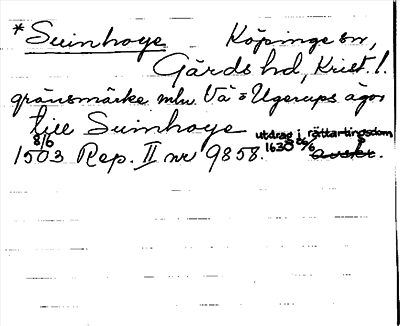 *Suinhoye Köpinge sn,
Gärds hd, Krist. l.
gränsmärke mln. Vä o Ugerups ägor
till Suinhoye utdrag i rättartingsdom
8/6 1503 Rep. II nr 9858. 1630 26/6 avskr.